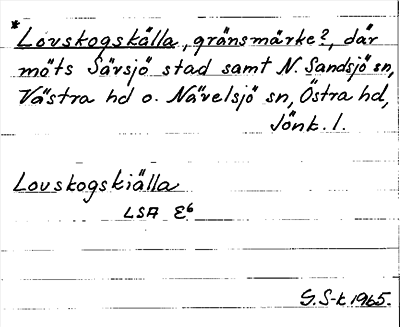 *Lovskogskälla, gränsmärke?, där
möts Sävsjö stad samt N. Sandsjö sn,
Västra hd o. Nävelsjö sn, Östra hd,
Jönk. l.
Lovskogskiälla
LSA E6
G.S-k 1965.